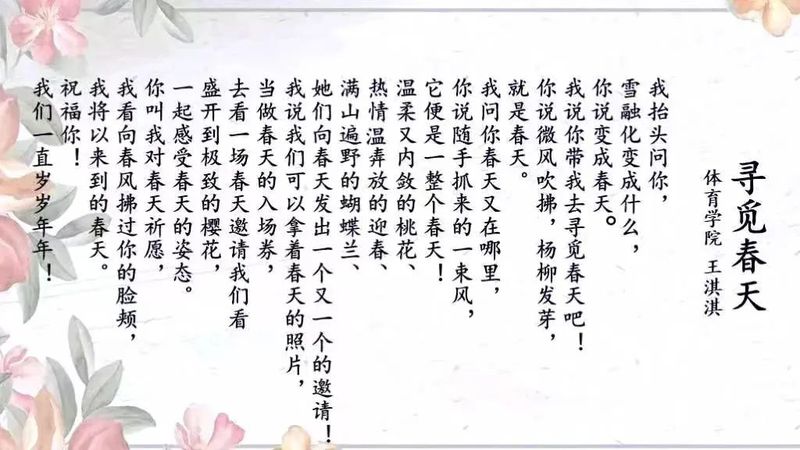 寻觅春天
体育学院 王淇淇
我抬头问你，
雪融化变成什么，
你说变成春天。
我说你带我去寻觅春天吧！
你说微风吹拂，杨柳发芽，
就是春天。
我问你春天又在哪里，
你说随手抓来的一束风，
它便是一整个春天！
温柔又内敛的桃花、
热情温奔放的迎春、
满山遍野的蝴蝶兰、
她们向春天发出一个又一个的邀请！
我说我们可以拿着春天的照片，
当做春天的入场券，
去看一场春天邀请我们看
盛开到极致的樱花，
一起感受春天的姿态。
你叫我对春天祈愿，
我看向春风拂过你的脸颊，
我将以来到的春天。
祝福你！
我们一直岁岁年年！